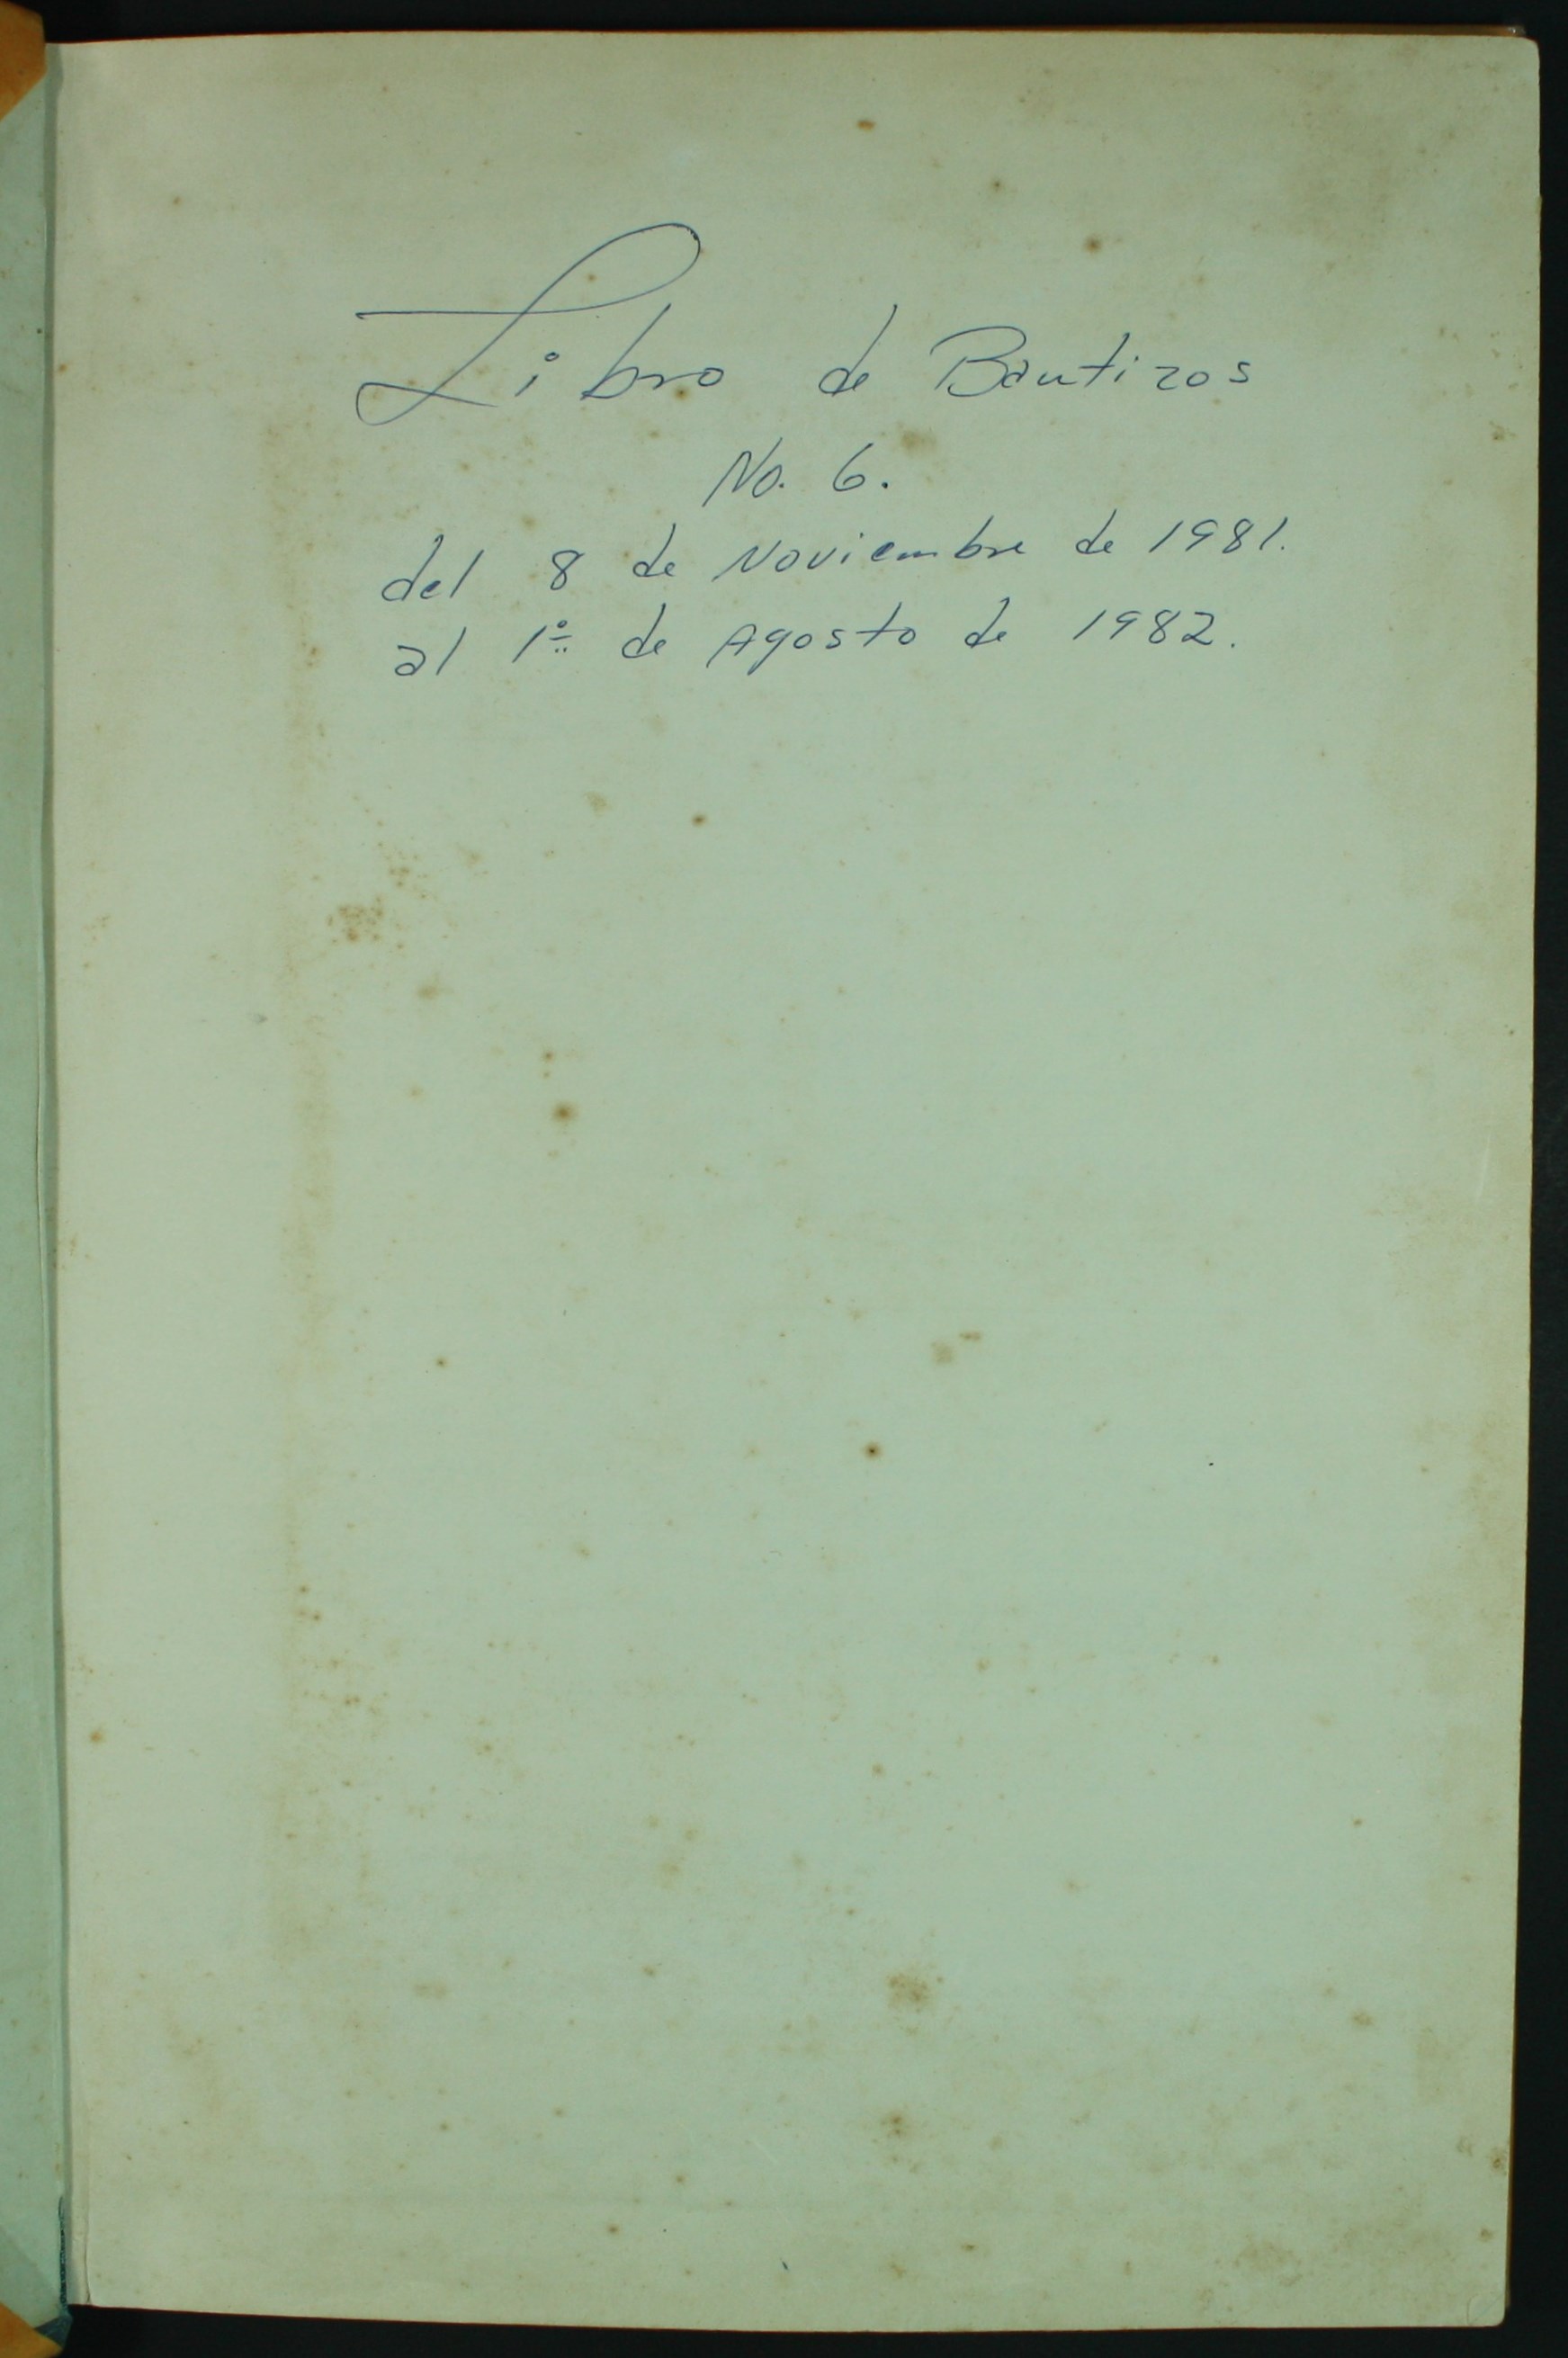 Libro de Bautizos
No. 6.
del 8 de Noviembre de 1981.
al 1º de Agosto de 1982.